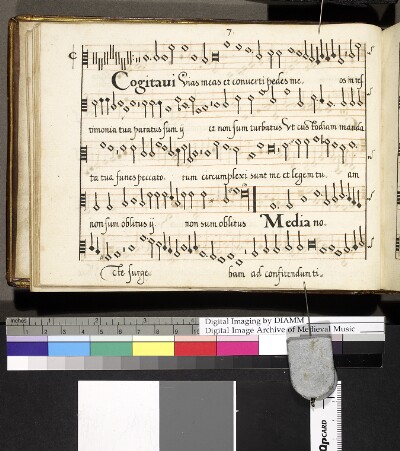 7.
Cogitaui Vias meas et conuerti pedes me. os in tes
timonia tua paratus sum ij et non sum turbatus Vt cus todiam manda
ta tua funes peccato. rum circumplexi sunt me et legem tu. am
non sum oblitus ij non sum oblitus Media no.
cte surge. bam ad confitendum ti.
inches 1 2
Digital Imaging by DIAMM
Digital Image Archive of Medieval Music
QPCARD